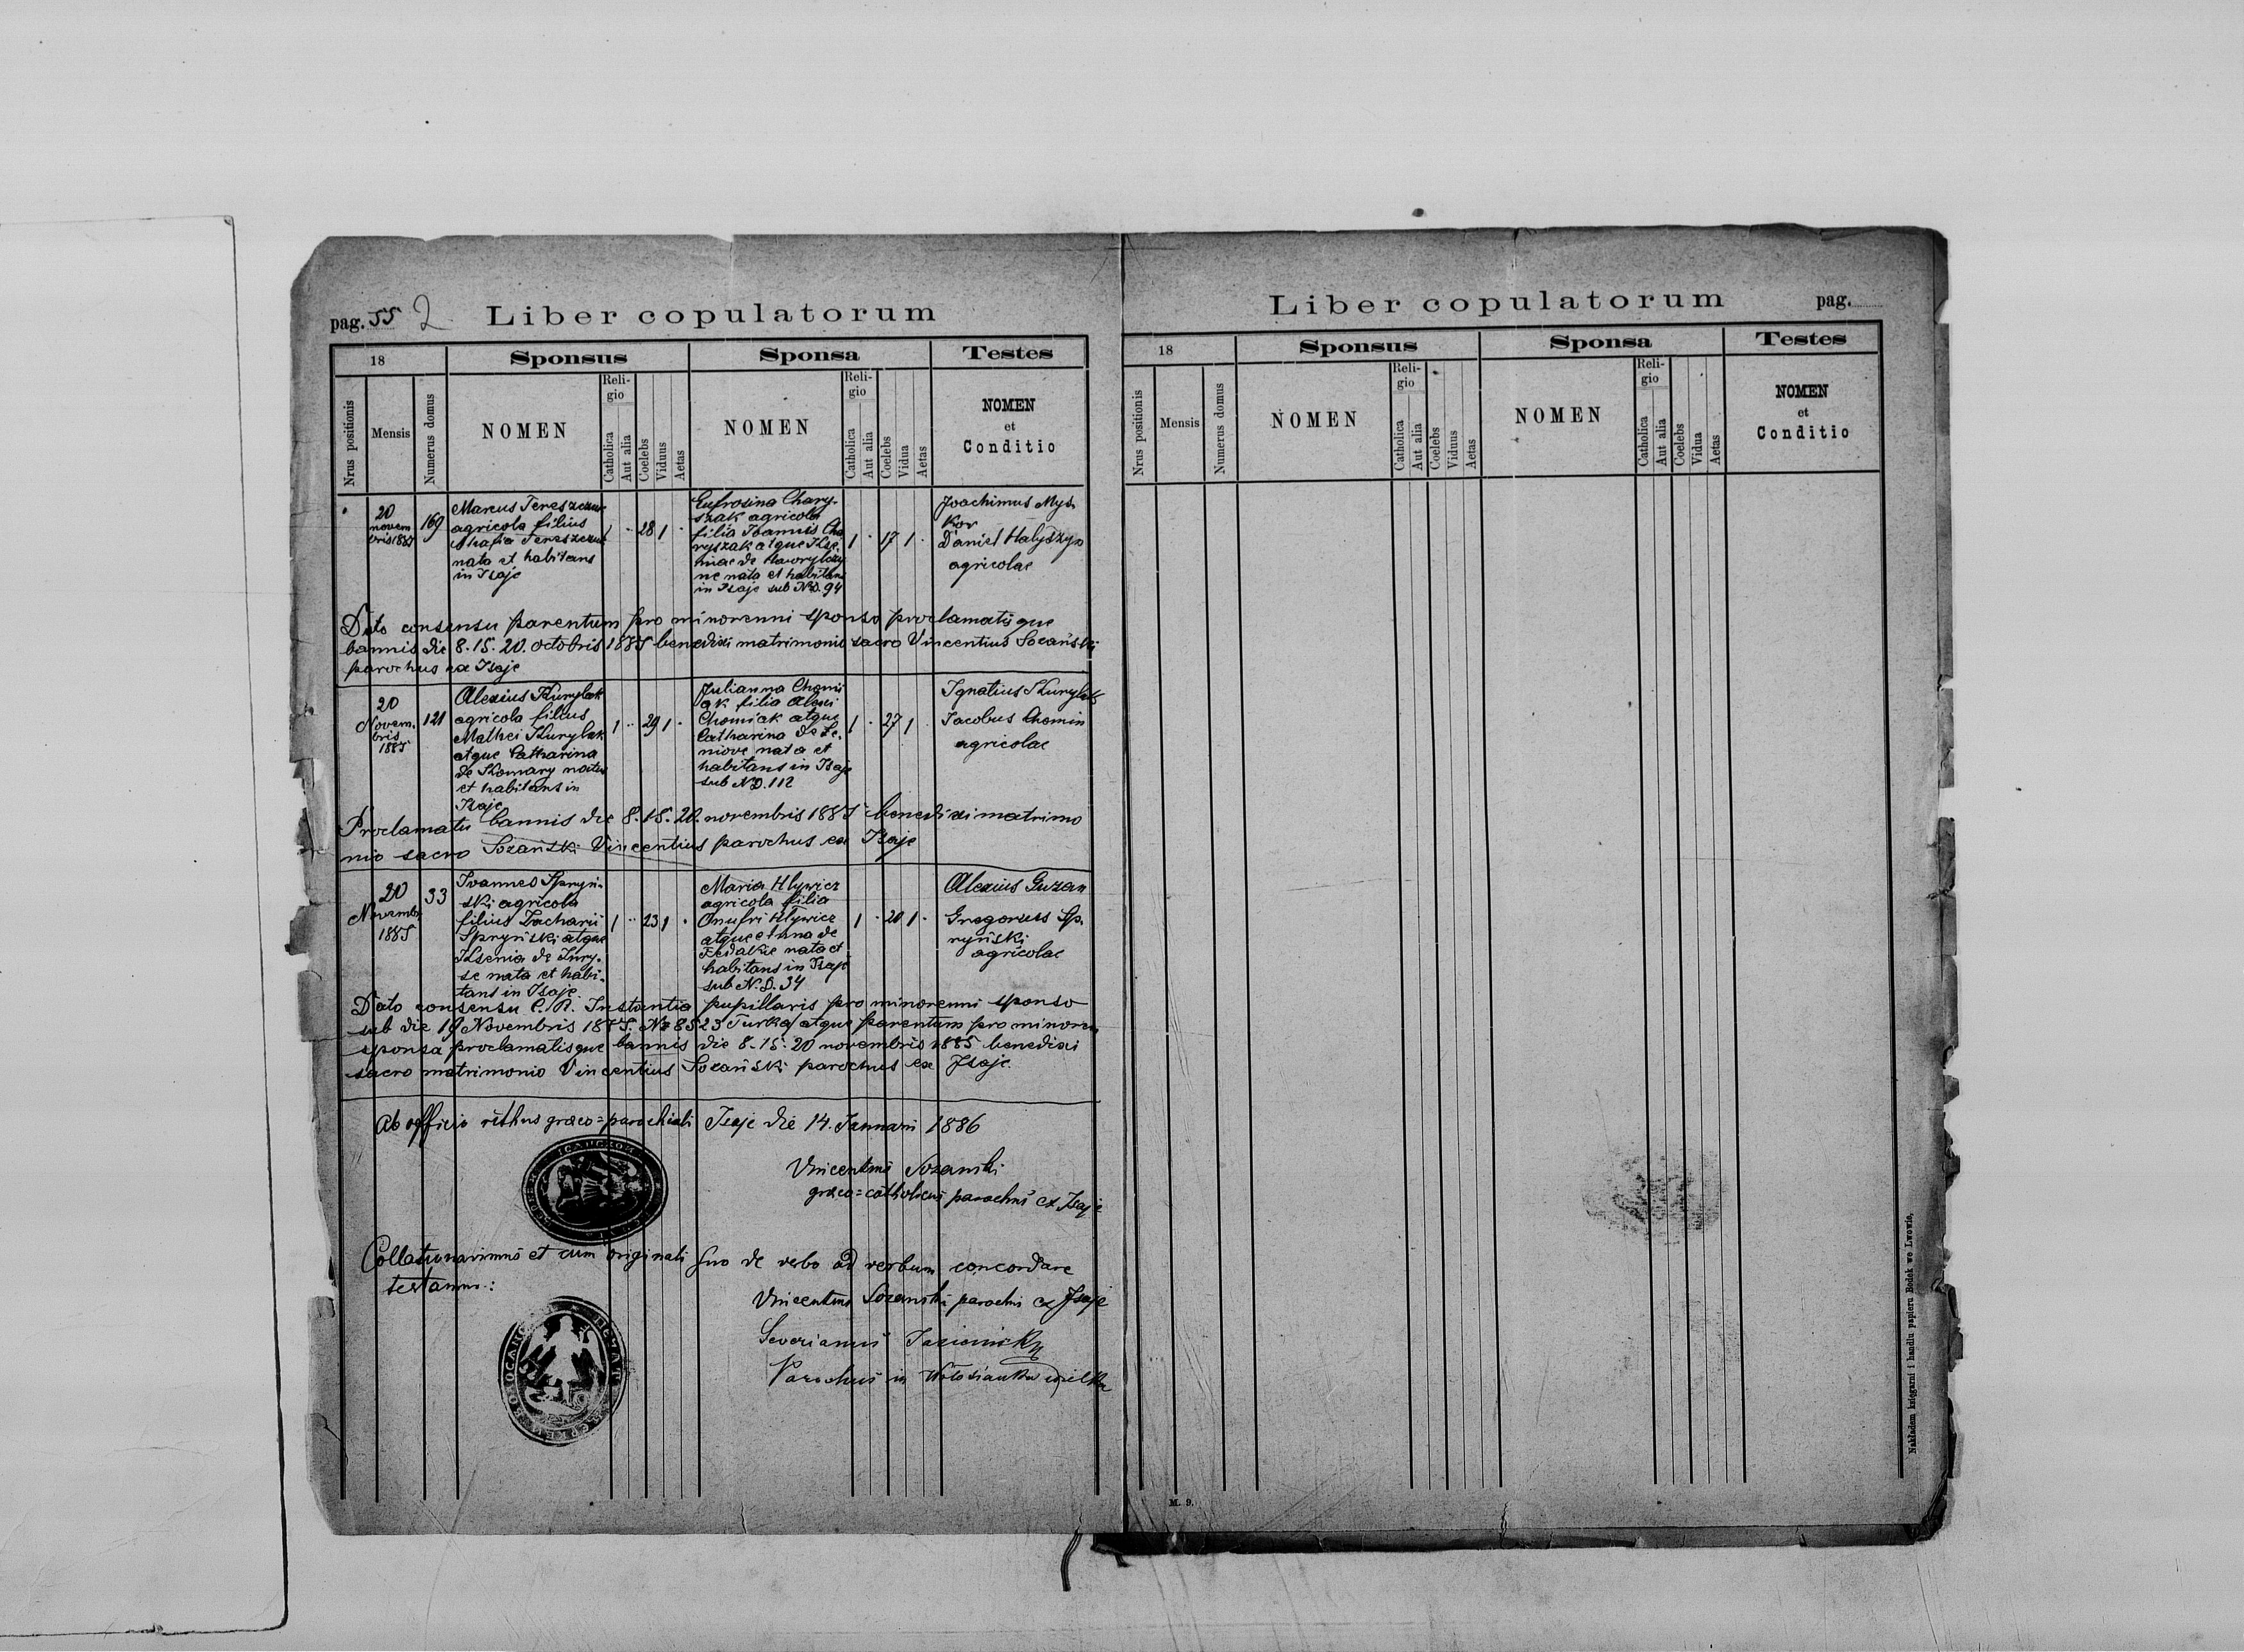 pag. 55 2
Liber copulatorum
18
Sponsus
Sponsa
Testes
Nrus positionis
Mensis
Numerus domus
NOMEN
Reli-
gio
Catholica
Aut alia
Coelebs
Viduus
Aetas
NOMEN
Reli-
gio
Catholica
Aut alia
Coelebs
Vidua
Aetas
NOMEN
et
Conditio
20
novem
bris 1885
169
Marcus Tereszczuk
agricola filius
Tereszczuk
nata et habitans
in Isaje
1 28 1
Eufrosina Chary-
szak agricola
filia Joannis Cha
ryszak atque
niae de
ne nata et habitans
in Isaje sub N.D. 94
1 17 1
Joachimus Mys
kor
Daniel Halyszyn
agricolae
Dato consensu parentum pro minorenni sponso proclamatisque
bannis die 8. 15. 20. octobris 1885 benedixi matrimonio sacro Vincentius Sozański
parochus ex Isaje
20
Novem.
bris
1885
121
Alexius Kurylak
agricola filius
Mathei Kurylak
atque Catharina
de Komary natus
et habitans in
Isaje
1 29 1
Julianna Chomi
ak filia Alexii
Chomiak atque
Catharina de Le.
niove nata et
habitans in Isaje
sub N.D. 112
1 27 1
Ignatius Kurylak
Jacobus Chomin
agricolae
Proclamatis bannis die 8. 15. 20. novembris 1885 benedixi matrimo
nio sacro Sozański Vincentius parochus ex Isaje
20
Novembr
1885
33
Ivannes Spryń-
ski agricola
filius Zacharii
Spryński atque
Ksenia de Kury-
se nata et habi-
tans in Isaje
1 23 1
Maria Hlywicz
agricola filia
Onufri Hlywicz
atque Anna de
Fedakie nata et
habitans in Isaje
sub N.D. 34
1 20 1
Alexius Guzan
Gregorius Sp.
ryński
agricolae
Dato consensu C. R. Instantia pupillaris pro minorenni sponso
sub die 19 Novembris 1885. No 8523 Turka/atque parentum pro minoren
sponsa proclamatisque bannis die 8. 15. 20 novembris 1885 benedixi
sacro matrimonio Vincentius Sozański parochus ex Isaje.
Ab officio rithus graeco=parochiali Isaje die 14. Januarii 1886
Vincentius Sozanski
graeco=catholicus parochus ex Isaje
Collationavimus et cum originali suo de verbo ad verbum concordare
testamur:
Vincentius Sozanski parochus ex Isaje
Severianus Jasienicki
Parochus in Wołosianka wielka
Liber copulatorum
pag.
18
Sponsus
Sponsa
Testes
Nrus positionis
Mensis
Numerus domus
NOMEN
Reli-
gio
Catholica
Aut alia
Coelebs
Viduus
Aetas
NOMEN
Reli-
gio
Catholica
Aut alia
Coelebs
Vidua
Aetas
NOMEN
et
Conditio
M. 9.
Nakładem księgarni i handlu papieru Bodek we Lwowie.